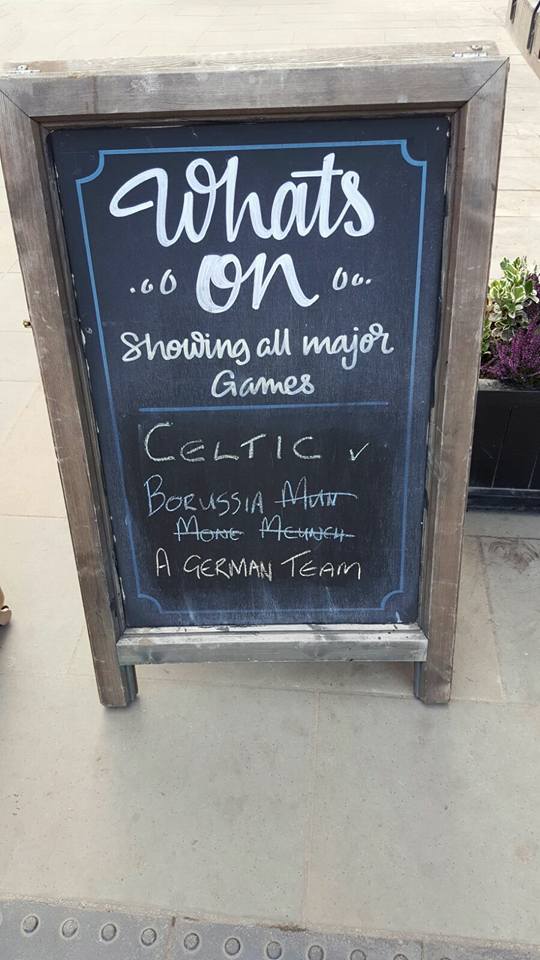 Whats
on
Showing all major
Games
CELTIC ✓
BORUSSIA MUN
MONC MEUNCH
A GERMAN TEAM